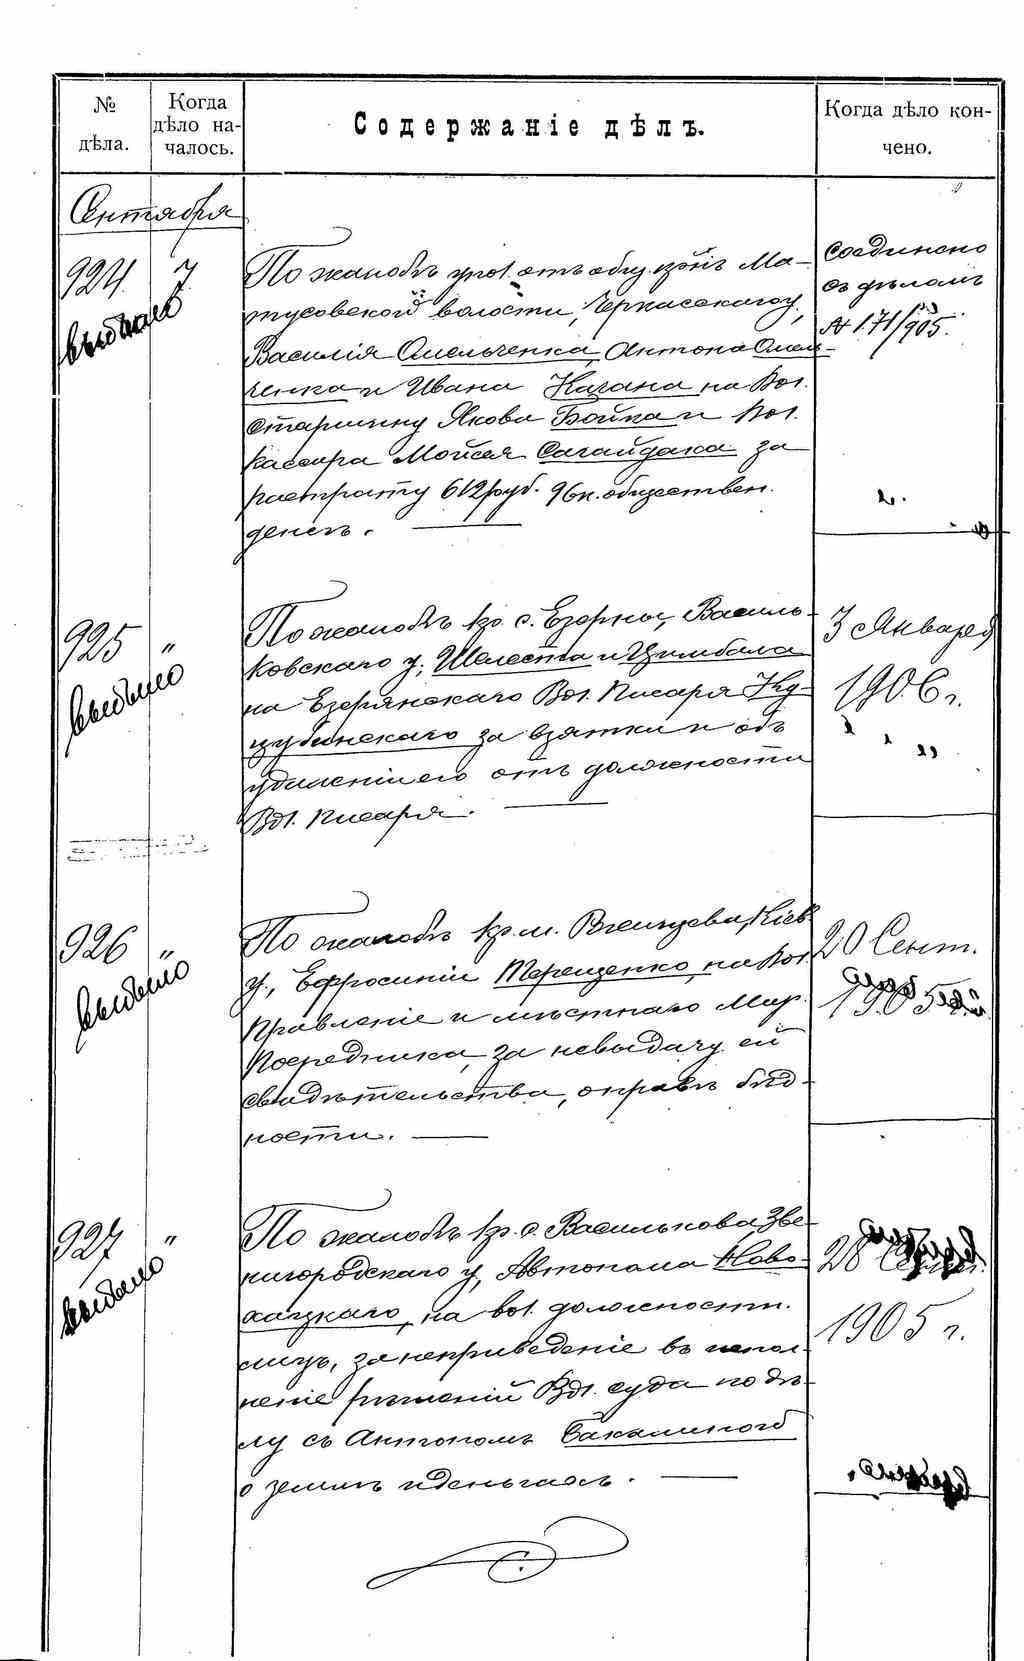 № дѣла.
Когда дѣло на-
чалось.
Содержаніе дѣлъ.
Когда дѣло кон-
чено.
Сентября
924
7
выбыло
По жалобѣ упол. отъ общ. кр-нъ Ма-
тусовской волости, Черкасскаго у.,
Василія Омельченка, Антона Омель-
ченка и Ивана Качана на Вол.
старшину Якова Бойка и Вол.
кассира Мойсея Сагайдака за
растрату 612 руб. 96 к. обществен.
денегъ.
Соединено
съ дѣломъ
№ 171/905.
925
"
выбыло
По жалобѣ кр. с. Езерны, Василь-
ковскаго у., Шелеста и Цимбала
на Езерянскаго Вол. Писаря Ку-
цубинскаго за взятки и объ
удаленіи его отъ должности
Вол. Писаря.
3 Января
1906 г.
926
"
выбыло
По жалобѣ кр. м. Кіев.
у., Ефросиніи Терещенко, на Вол.
Правленіе и мѣстнаго Мир.
Посредника, за невыдачу ей
свидѣтельства, о правѣ бѣд-
ности.
20 Сент.
1905
927
"
выбыло
По жалобѣ кр. с. Василькова, Зве-
нигородскаго у., Автонома Ново-
хацкаго, на вол. должностн.
лицъ, за неприведеніе въ испол-
неніе рѣшеній Вол. суда по дѣ-
лу съ Антономъ Бакалиной
о землѣ и деньгахъ.
28 Сент.
1905 г.